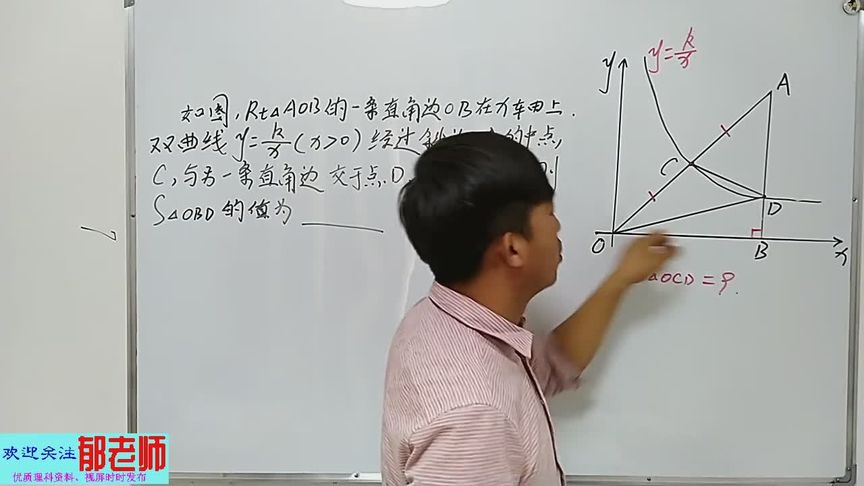 如图,Rt△AOB的一条直角边OB在x轴上.
双曲线y=k/x(x>0)经过斜 的中点,
C,与另一条直角边交于点D.
S△OBD的值为____
y=k/x
y
A
C
D
O
B
x
△OCD=9.
欢迎关注郁老师
优质理科资料、视屏时时发布